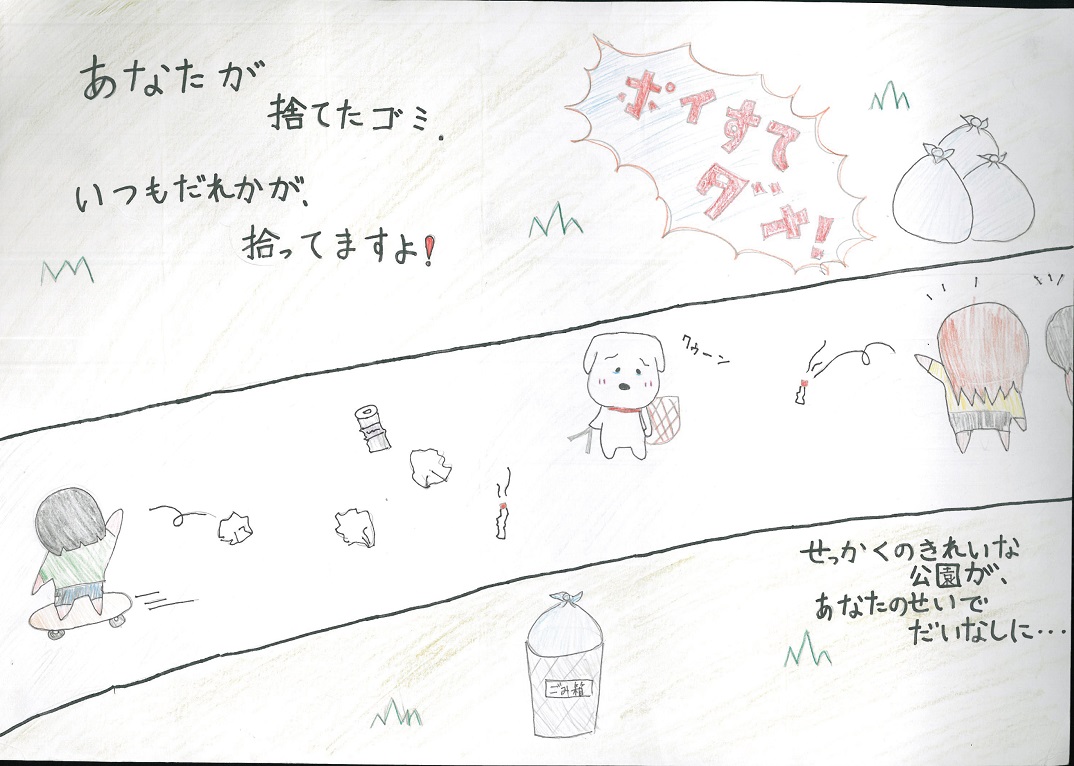 あなたが
捨てたゴミ.
いつもだれかが、
拾ってますよ!
ポイすて
ダメ!
クゥーン
せっかくのきれいな
公園が、
あなたのせいで
だいなしに・・・
ごみ箱